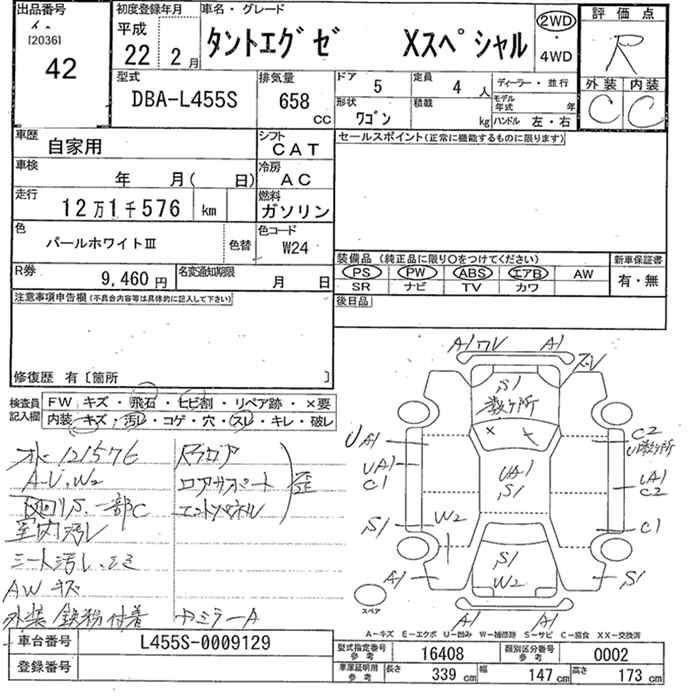 出品番号
[2036]
42
初度登録年月 車名・グレード
平成
22年 2月
タントエグゼ Xスペシャル
2WD
・
4WD
評価点
R
外装 内装
C C
型式
DBA-L455S
排気量
658 cc
ドア 5
定員 4 人
ディーラー・並行
形状 ワゴン
積載 kg
モデル年式 年
ハンドル 左・右
車歴 自家用
シフト CAT
セールスポイント(正常に機能するものに限ります)
車検 年 月( 日)
冷房 AC
走行 12万1千576 km
燃料 ガソリン
色 パールホワイトⅢ
色替
色コード W24
装備品 (純正品に限り〇をつけてください)
新車保証書
PS PW ABS エアB AW
SR ナビ TV カワ
有・無
R券 9,460円
名変通知期限 月 日
後日品
注意事項申告欄(不具合内容等は具体的に記入して下さい)
修復歴 有〔箇所 〕
検査員記入欄
FW キズ・飛石・ヒビ割・リペア跡・×要
内装・キズ・汚レ・コゲ・穴・スレ・キレ・破レ
A-U、W2
室内汚レ
シート汚レ
AWキズ
外装 鉄粉付着
ロアサポート
歪
A1 ワレ A1
S1
数ヶ所
UA1
UA1
C1
UA1
S1
C2
U数ヶ所
UA1
C2
S1
W2
C1
S1
W2
A1
S1
A1 A1
スペア
A-キズ E-エクボ U-凹み W-補修跡 S-サビ C-腐食 XX-交換済
車台番号 L455S-0009129
登録番号
型式指定番号参考 16408
類別区分番号参考 0002
車庫証明用参考 長さ 339 cm 幅 147 cm 高さ 173 cm